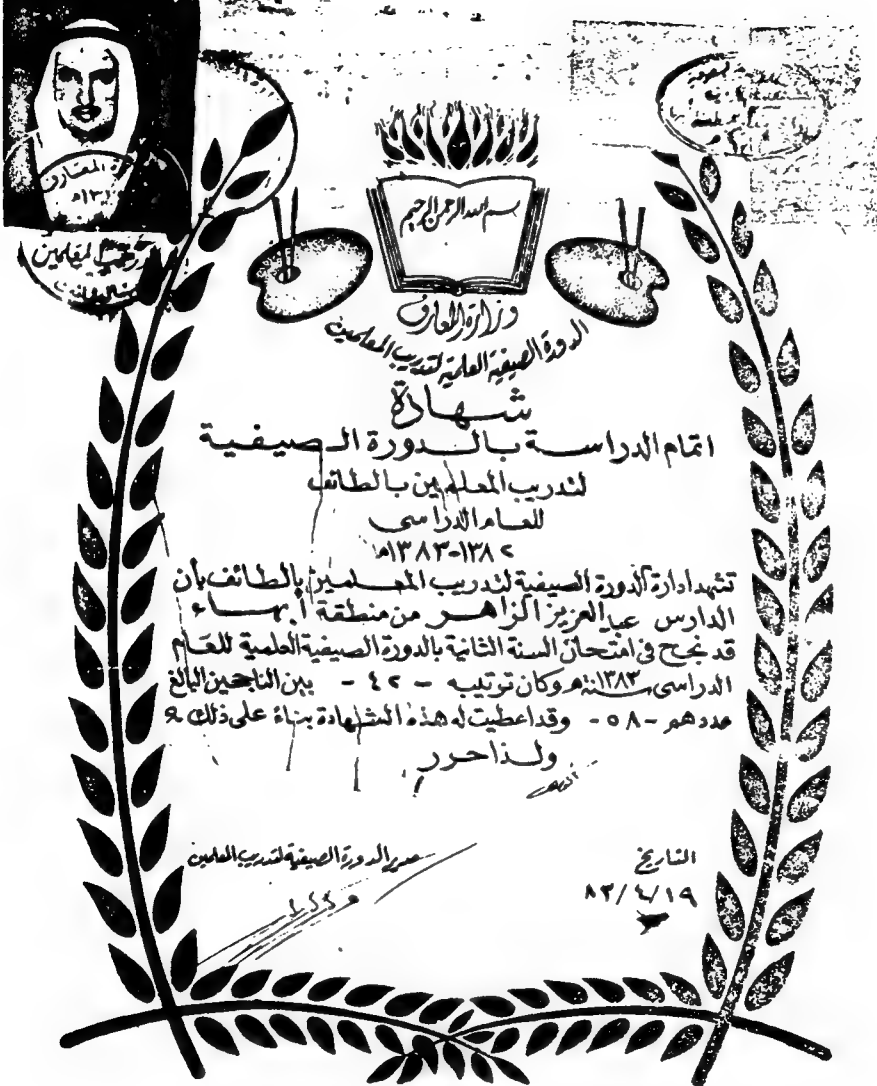 بسم الله الرحمن الرحيم
وزارة المعارف
الدورة الصيفية العلمية لتدريب المعلمين
شهادة
اتمام الدراسة بالدورة الصيفية
لتدريب المعلمين بالطائف
للعام الدراسى
١٣٨٢-١٣٨٣ه
تشهد ادارة الدورة الصيفية لتدريب المعلمين بالطائف بأن
الدارس عبد العزيز الزاهر من منطقة أبهاء
قد نجح فى امتحان السنة الثانية بالدورة الصيفية العلمية للعام
الدراسى ١٣٨٣ه وكان ترتيبه - ٤٢ - بين الناجحين البالغ
عددهم - ٥٨ - وقد اعطيت له هذه الشهادة بناءً على ذلك
ولذا حرر
مدير الدورة الصيفية لتدريب المعلمين
التاريخ
٨٣/٤/١٩